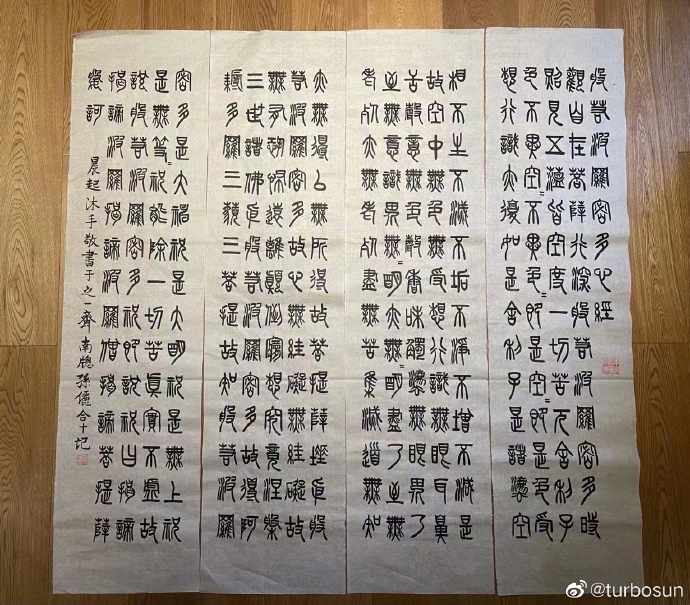 般若波羅密多心經
觀自在菩薩行深般若波羅密多時
照見五蘊皆空度一切苦厄舍利子
色不異空=不異色=即是空=即是色受
想行識亦復如是舍利子是諸法空
相不生不滅不垢不淨不增不減是
故空中無色無受想行識無眼耳鼻
舌身意無色聲香味觸法無眼界乃
至無意識界無=明亦無=明盡乃至無
老死亦無老死盡無苦集滅道無知
亦無得以無所得故菩提薩埵依般
若波羅密多故心無罣礙無罣礙故
無有恐怖遠離顛倒夢想究竟涅槃
三世諸佛依般若波羅密多故得阿
耨多羅三藐三菩提故知般若波羅
密多是大神祝是大明祝是無上祝
是無等=祝能除一切苦真實不虛故
說般若波羅密多祝即說祝曰揭諦
揭諦波羅揭諦波羅僧揭諦菩提薩
婆訶
晨起沐手敬書于之一齋南牕孫儷合十記
@turbosun